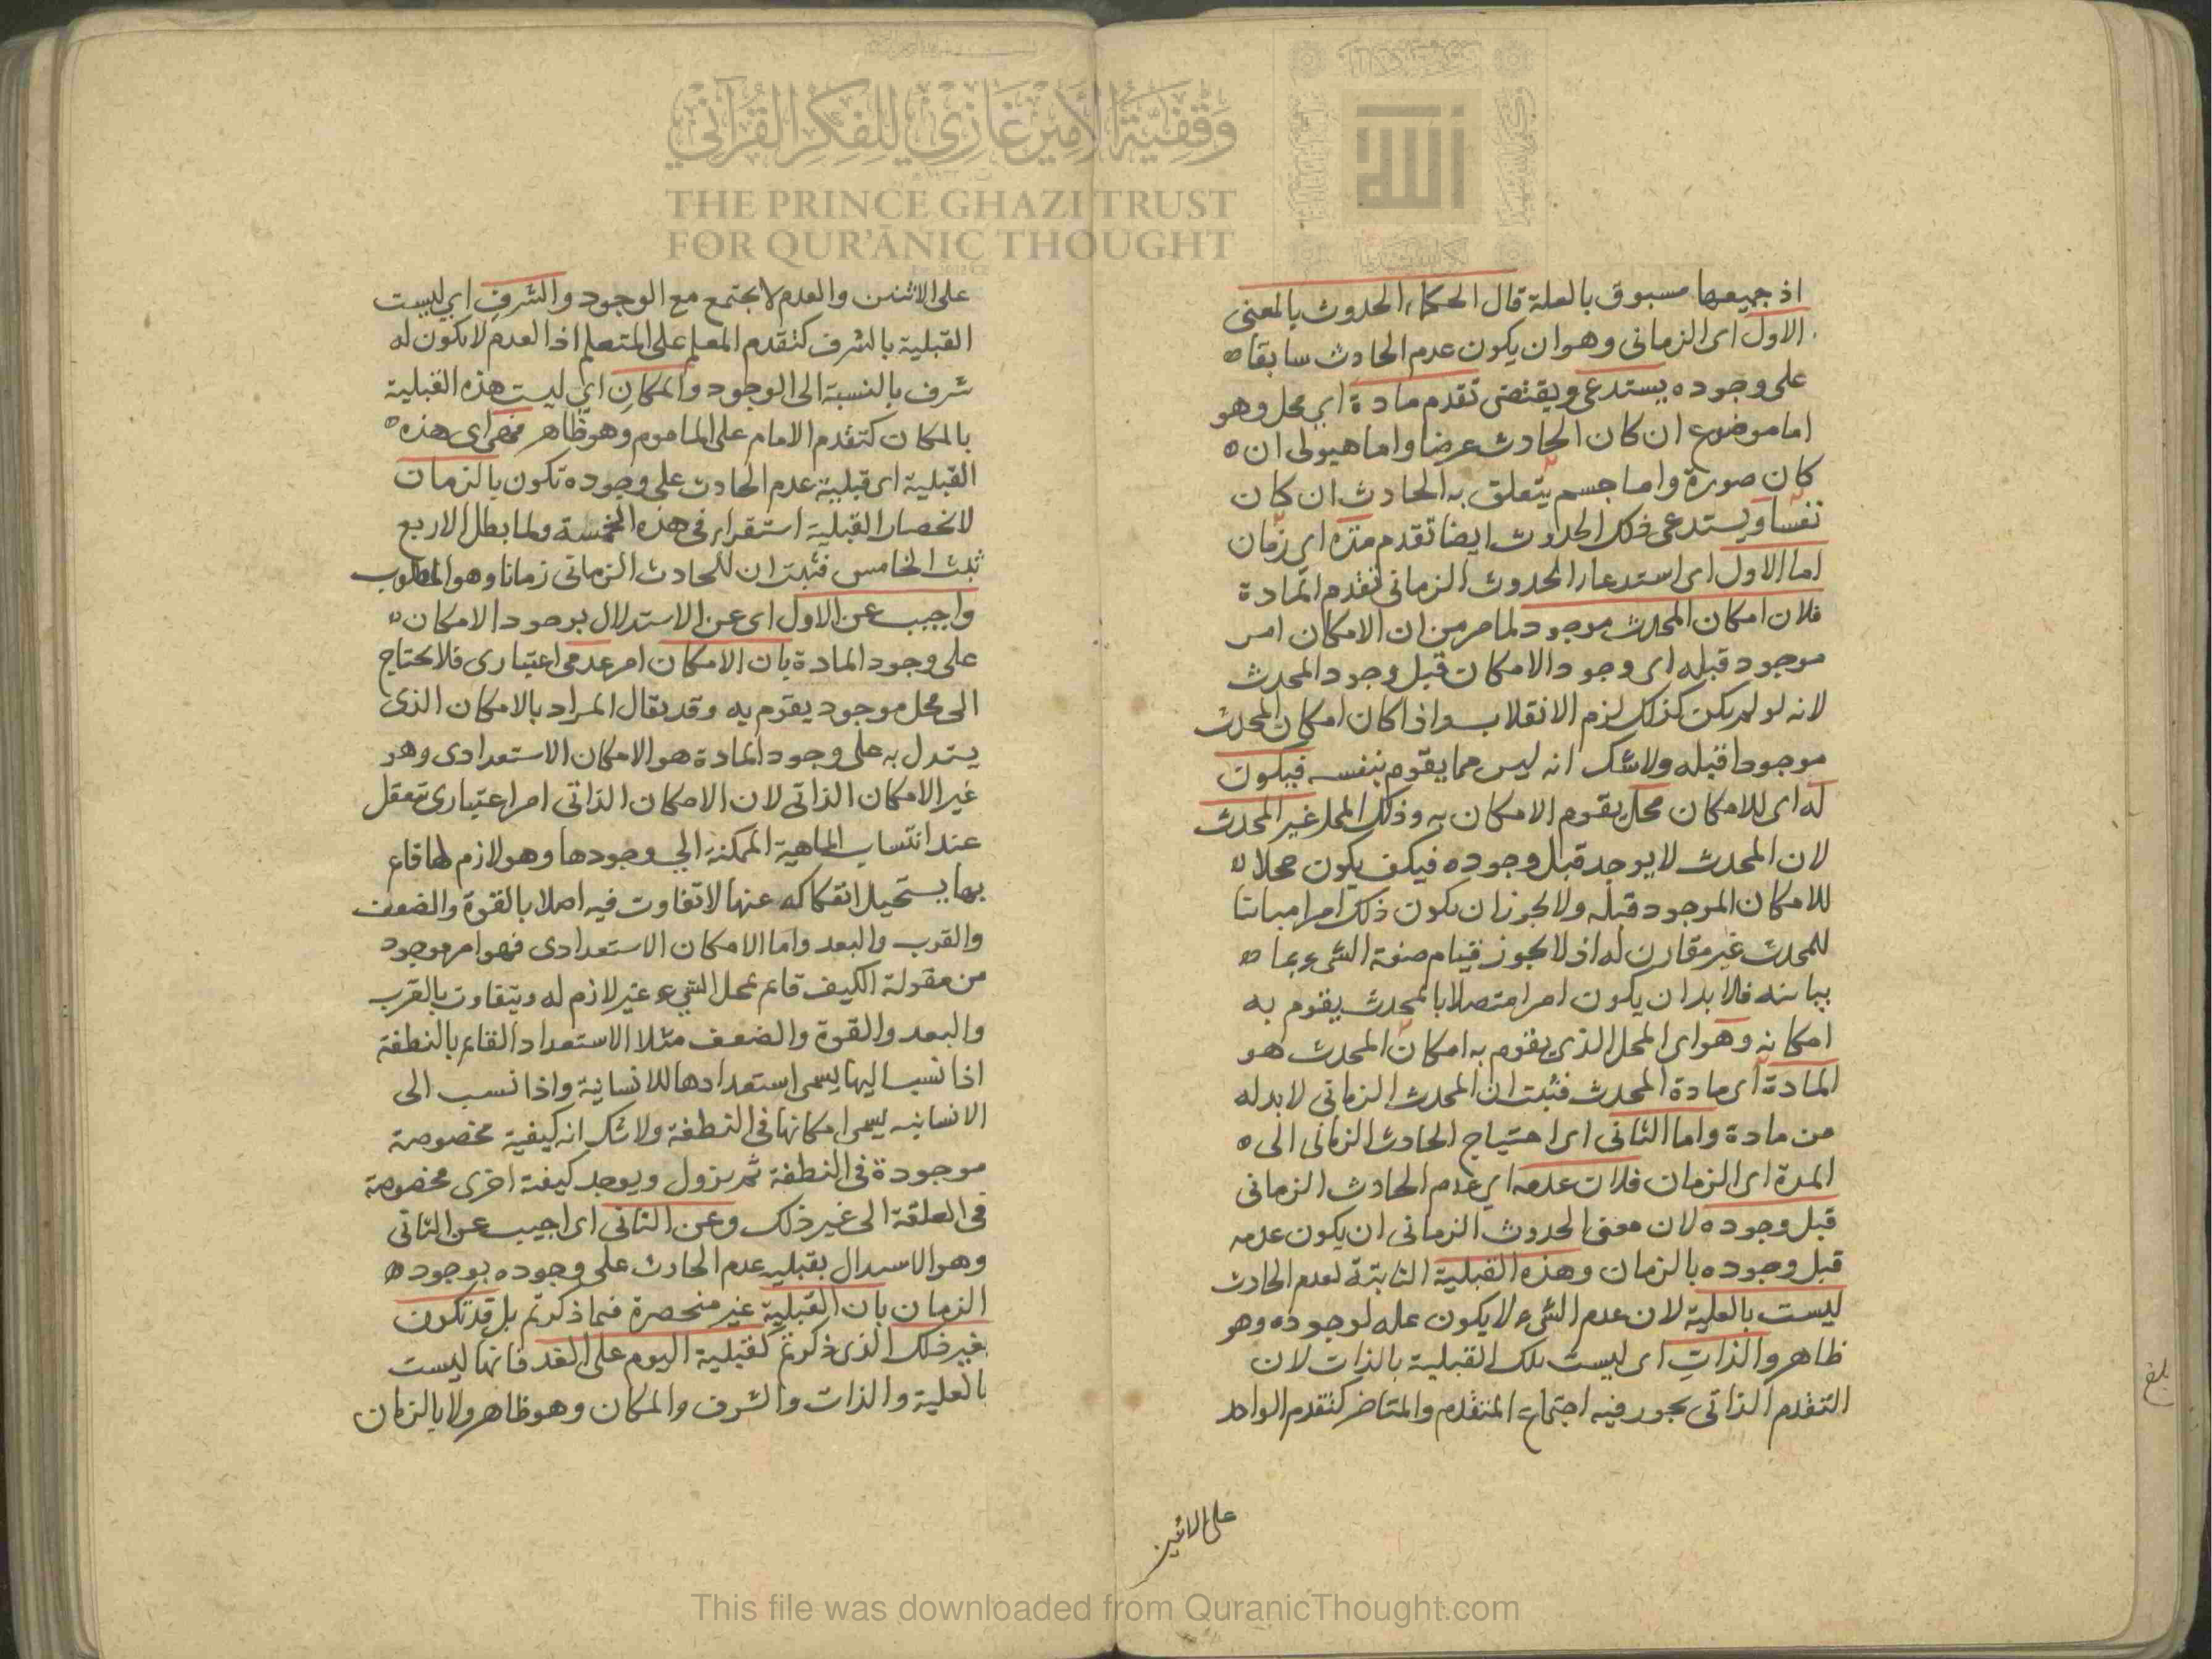 وقفية الأمير غازي للفكر القرآني
THE PRINCE GHAZI TRUST
FOR QUR'ĀNIC THOUGHT
الله
اذ جميعها مسبوق بالعلة قال الحكماء الحدوث بالمعنى
الاول اى الزمانى وهو ان يكون عدم الحادث سابقا
على وجوده يستدعى ويقتضى تقدم مادة اى محل وهو
اما موضوع ان كان الحادث عرضا واما هيولى ان
كان صورة واما جسم يتعلق به الحادث ان كان
نفسا ويستدعى ذلك الحدوث ايضا تقدم مدة اى زمان
اما الاول اى استدعاء الحدوث الزمانى تقدم المادة
فلان امكان المحدث موجود لما مر من ان الامكان امر
موجود قبله اى وجود الامكان قبل وجود المحدث
لانه لو لم يكن كذلك لزم الانقلاب واذا كان امكان المحدث
موجودا قبله ولاشك انه ليس مما يقوم بنفسه فيكون
له اى للامكان محل يقوم الامكان به وذلك المحل غير المحدث
لان المحدث لا يوجد قبل وجوده فيكف يكون محلا
للامكان الموجود قبله ولا يجوز ان يكون ذلك امرا مباينا
للمحدث غير مقارن له اذ لا يجوز قيام صفة الشىء بما
يباينه فلا بد ان يكون امرا متصلا بالمحدث يقوم به
امكانه وهو اى المحل الذى يقوم به امكان المحدث هو
المادة اى مادة المحدث فثبت ان المحدث الزمانى لابد له
من مادة واما الثانى اى احتياج الحادث الزمانى الى
المدة اى الزمان فلان عدمه اى عدم الحادث الزمانى
قبل وجوده لان معنى الحدوث الزمانى ان يكون عدمه
قبل وجوده بالزمان وهذه القبلية الثابتة لعدم الحادث
ليست بالعلية لان عدم الشىء لا يكون عله لوجوده وهو
ظاهر والذات اى ليست تلك القبلية بالذات لان
التقدم الذاتى يجوز فيه اجتماع المتقدم والمتاخر كتقدم الواحد
على الاثنين
بلغ
على الاثنين والعدم لا يجتمع مع الوجود والشرف اى ليست
القبلية بالشرف كتقدم المعلم على المتعلم اذ العدم لا يكون له
شرف بالنسبة الى الوجود والمكان اى ليست هذه القبلية
بالمكان كتقدم الامام على الماموم وهو ظاهر فهى اى هذه
القبلية اى قبلية عدم الحادث على وجوده تكون بالزمان
لانحصار القبلية استقراء فى هذه الخمسة ولما بطل الاربع
ثبت الخامس فثبت ان للحادث الزمانى زمانا وهو المطلوب
واجيب عن الاول اى عن الاستدلال بوجود الامكان
على وجود المادة بان الامكان امر عدمى اعتبارى فلا يحتاج
الى محل موجود يقوم به وقد يقال المراد بالامكان الذى
يستدل به على وجود المادة هو الامكان الاستعدادى وهو
غير الامكان الذاتى لان الامكان الذاتى امر اعتبارى يتعقل
عند انتساب الماهية الممكنة الى وجودها وهو لازم لها قائم
بها يستحيل انفكاكه عنها لا تفاوت فيه اصلا بالقوة والضعف
والقرب والبعد واما الامكان الاستعدادى فهو امر موجود
من مقولة الكيف قائم بمحل الشىء غير لازم له ويتفاوت بالقرب
والبعد والقوة والضعف مثلا الاستعداد القائم بالنطفة
اذا نسب اليها يسمى استعدادها للانسانية واذا نسب الى
الانسانيه يسمى امكانها فى النطفة ولاشك انه كيفية مخصوصة
موجودة فى النطفة ثم يزول ويوجد كيفية اخرى مخصوصة
فى العلقة الى غير ذلك وعن الثانى اى اجيب عن الثانى
وهو الاستدلال بقبليه عدم الحادث على وجوده بوجود
الزمان بان القبلية غير منحصرة فيما ذكرتم بل قد تكون
بغير ذلك الذى ذكرتم كقبلية اليوم على الغد فانها ليست
بالعلية والذات والشرف والمكان وهو ظاهر ولا بالزمان
This file was downloaded from QuranicThought.com